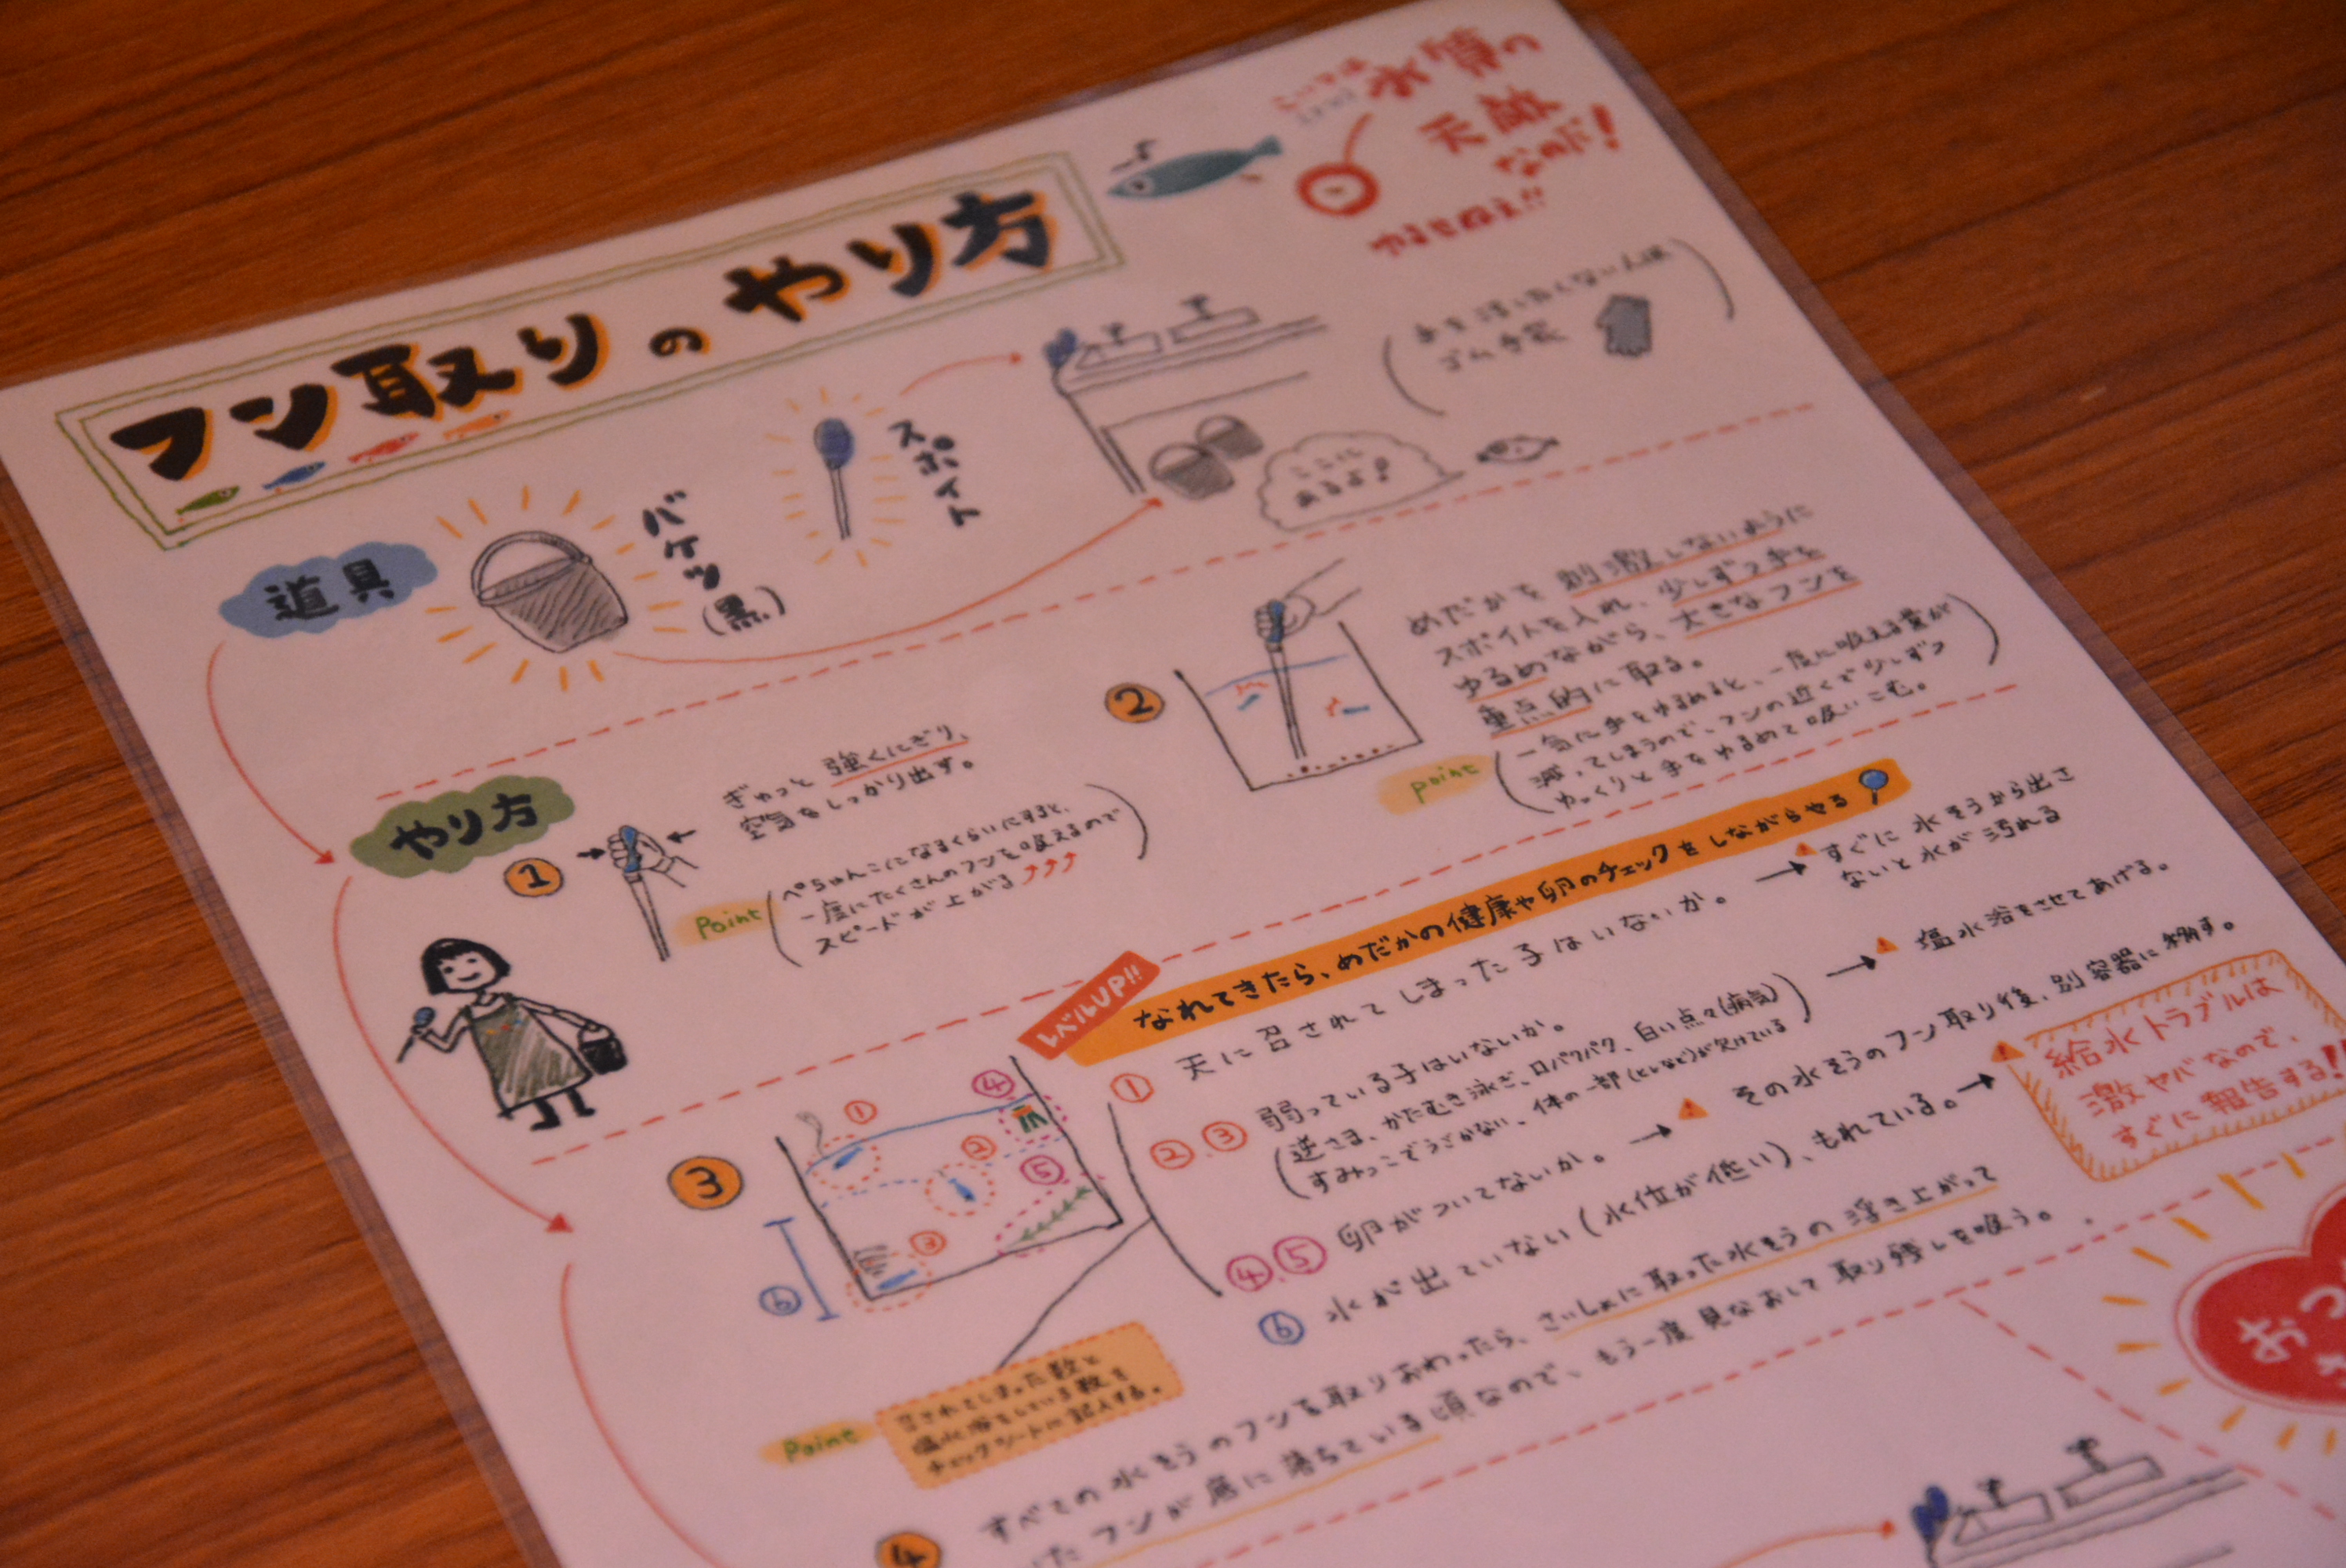 フン取りのやり方
水質の
天敵
なのだ!
ゆるせねぇ!!
道具
バケツ
(黒)
スポイト
ここに
あるよ!
手を汚したくない人は
ゴム手袋
やり方
①
ぎゅっと強くにぎり、
空気をしっかり出す。
Point
ぺちゃんこになるくらいにすると、
一度にたくさんのフンを吸えるので
スピードが上がる
②
めだかを刺激しないように
スポイトを入れ、少しずつ手を
ゆるめながら、大きなフンを
重点的に取る。
point
一気に手をゆるめると、一度に吸える量が
減ってしまうので、フンの近くで少しずつ
ゆっくりと手をゆるめて吸いこむ。
レベルUP!!
なれてきたら、めだかの健康や卵のチェックをしながらやる
③
① ② ③ ④ ⑤ ⑥
① 天に召されてしまった子はいないか。→ すぐに水そうから出さ
ないと水が汚れる
②.③ 弱っている子はいないか。
(逆さま、かたむき泳ぎ、口パクパク、白い点々(病気)
すみっこでうごかない、体の一部(としなど)が欠けている) → 塩水浴をさせてあげる。
④.⑤ 卵がついてないか。→ その水そうのフン取り後、別容器に移す。
⑥ 水が出ていない(水位が低い)、もれている。→
給水トラブルは
激ヤバなので、
すぐに報告する!!
Point
召されてしまった数と
塩水浴をしている数を
チェックシートに記入する。
④
すべての水そうのフンを取りおわったら、さいしょに取った水そうの浮き上がって
いたフンが底に落ちている頃なので、もう一度見なおして取り残しを吸う。
おつ